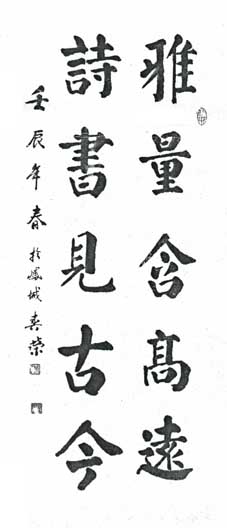 雅量含高遠
詩書見古今
壬辰年春於鳳城春榮